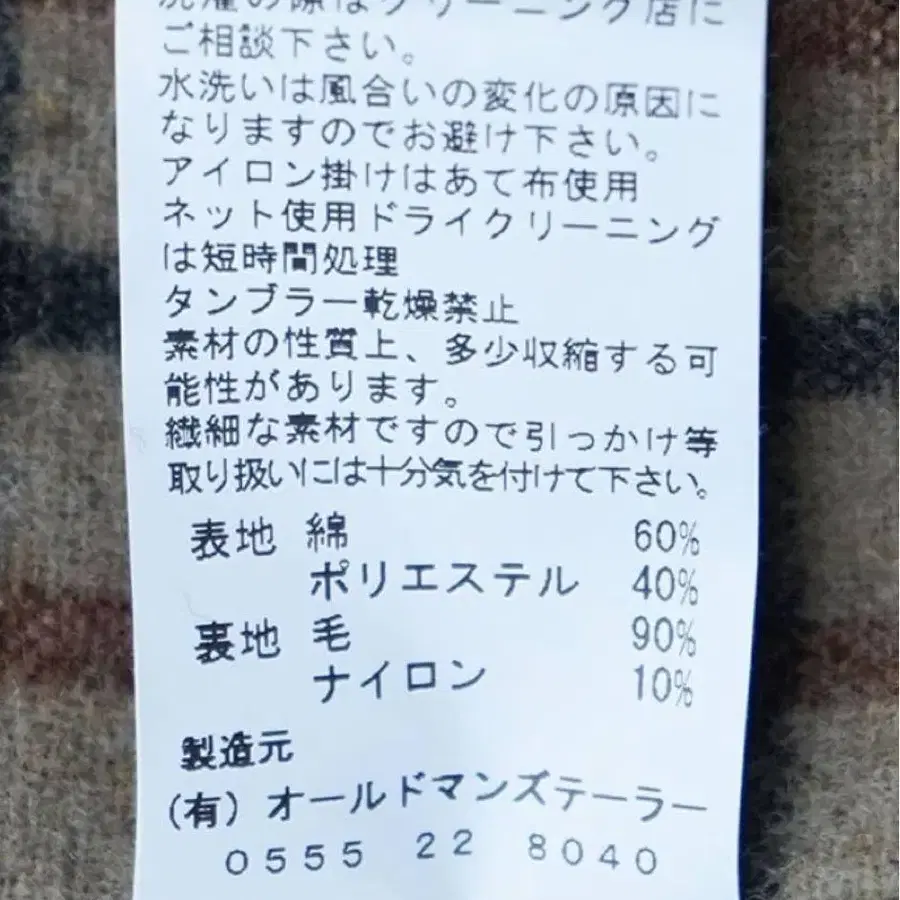 洗濯の際はクリーニング店に
ご相談下さい。
水洗いは風合いの変化の原因に
なりますのでお避け下さい。
アイロン掛けはあて布使用
ネット使用ドライクリーニング
は短時間処理
タンブラー乾燥禁止
素材の性質上、多少収縮する可
能性があります。
繊細な素材ですので引っかけ等
取り扱いには十分気を付けて下さい。
表地 綿 60%
ポリエステル 40%
裏地 毛 90%
ナイロン 10%
製造元
(有) オールドマンズテーラー
0555 22 8040